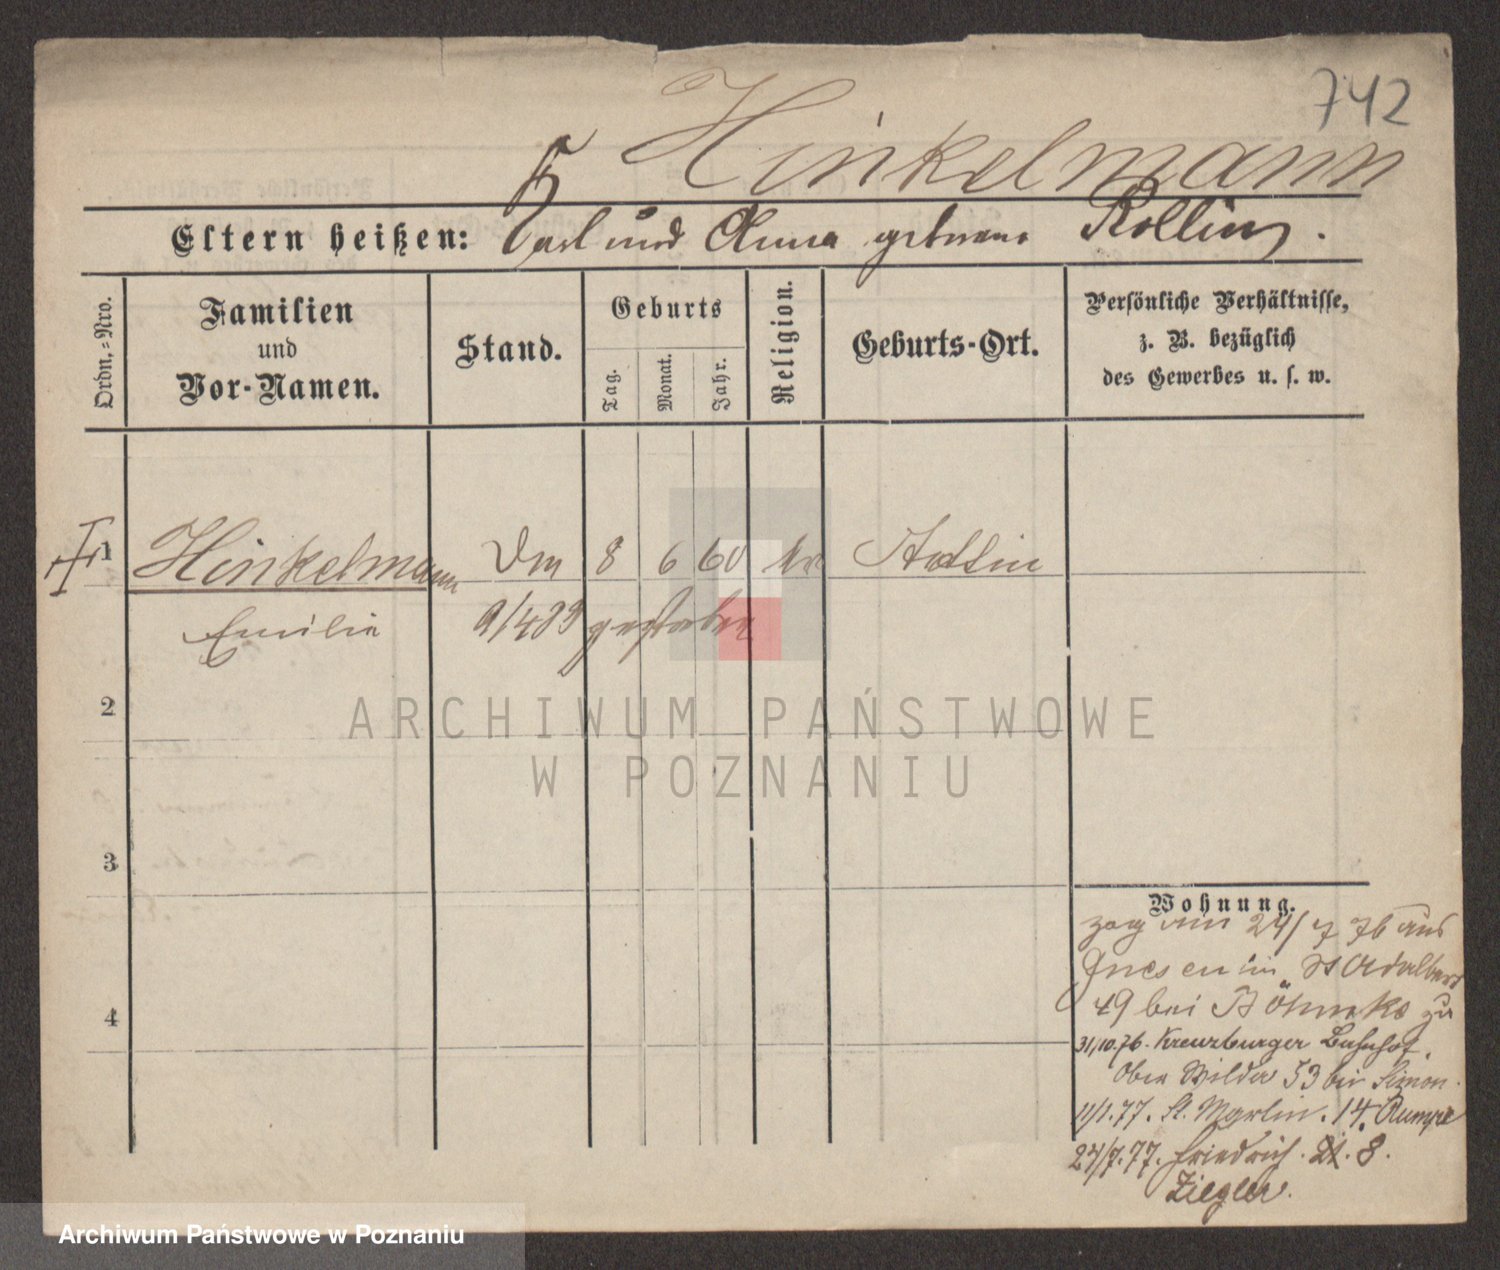 742
Hinkelmann
Eltern heißen: Carl und Anna geborene Rolling.
Ordn.=Nro.
Familien
und
Vor-Namen.
Stand.
Geburts
Tag.
Monat.
Jahr.
Religion.
Geburts-Ort.
Persönliche Verhältnisse,
z. B. bezüglich
des Gewerbes u. s. w.
1 Hinkelmann 8 6 60
Emilie gestorben
2
ARCHIWUM PAŃSTWOWE
W POZNANIU
3
4
Wohnung.
zog am 24/7 76 aus
Gnesen in St Adalbert
49 bei Böhmke zu
31/10.76. Kreuzburger Bahnhof.
Ober Wilda 53 bei Simon.
11/1.77. St. Martin. 14. Rumpe
27/7.77. Friedrich. 21. 8.
Ziegler.
Archiwum Państwowe w Poznaniu